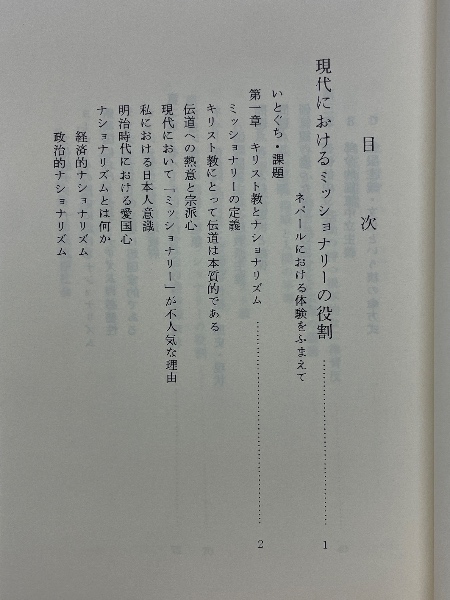 目次
現代におけるミッショナリーの役割……………………………1
ネパールにおける体験をふまえて
いとぐち・課題
第一章 キリスト教とナショナリズム……………………………2
ミッショナリーの定義
キリスト教にとって伝道は本質的である
伝道への熱意と宗派心
現代において「ミッショナリー」が不人気な理由
私における日本人意識
明治時代における愛国心
ナショナリズムとは何か
経済的ナショナリズム
政治的ナショナリズム